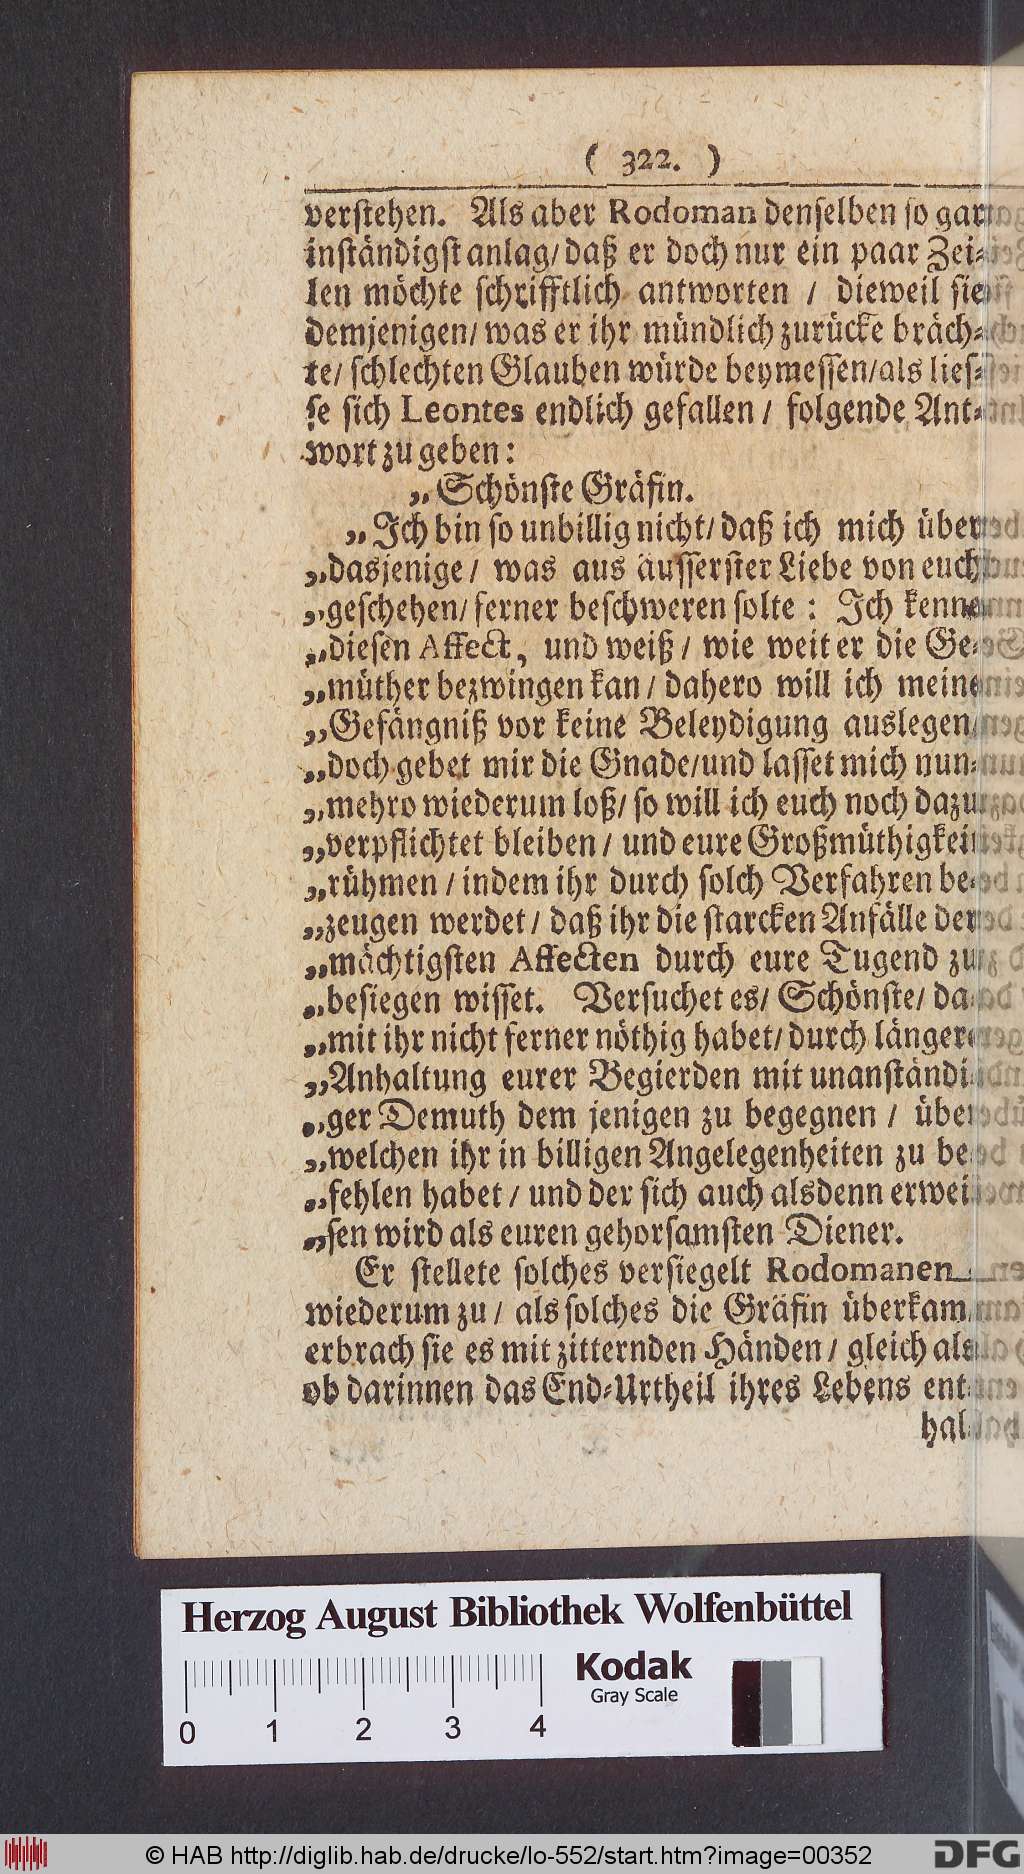 ( 322. )
verstehen. Als aber Rodoman denselben so gar
inständigst anlag/ daß er doch nur ein paar Zei-
len möchte schrifftlich antworten / dieweil sie
demjenigen/ was er ihr mündlich zurücke bräch-
te/ schlechten Glauben würde beymessen/ als lies-
se sich Leontes endlich gefallen / folgende Ant-
wort zu geben:
„ Schönste Gräfin.
„ Ich bin so unbillig nicht/ daß ich mich über
„dasjenige / was aus äusserster Liebe von euch
„geschehen/ ferner beschweren solte : Ich kenne
„diesen Affect, und weiß / wie weit er die Ge-
„müther bezwingen kan / dahero will ich meine
„Gefängniß vor keine Beleydigung auslegen/
„doch gebet mir die Gnade/ und lasset mich nun-
„mehro wiederum loß/ so will ich euch noch dazu
„verpflichtet bleiben / und eure Großmüthigkeit
„rühmen / indem ihr durch solch Verfahren be-
„zeugen werdet / daß ihr die starcken Anfälle der
„mächtigsten Affecten durch eure Tugend zu
„besiegen wisset. Versuchet es/ Schönste/ da
„mit ihr nicht ferner nöthig habet/ durch längere
„Anhaltung eurer Begierden mit unanständi-
„ger Demuth dem jenigen zu begegnen / über
„welchen ihr in billigen Angelegenheiten zu be-
„fehlen habet / und der sich auch alsdenn erwei-
„sen wird als euren gehorsamsten Diener.
Er stellete solches versiegelt Rodomanen
wiederum zu / als solches die Gräfin überkam/
erbrach sie es mit zitternden Händen / gleich als
ob darinnen das End-Urtheil ihres Lebens ent-
hal-
Herzog August Bibliothek Wolfenbüttel
Kodak
Gray Scale
0 1 2 3 4
© HAB http://diglib.hab.de/drucke/lo-552/start.htm?image=00352
DFG